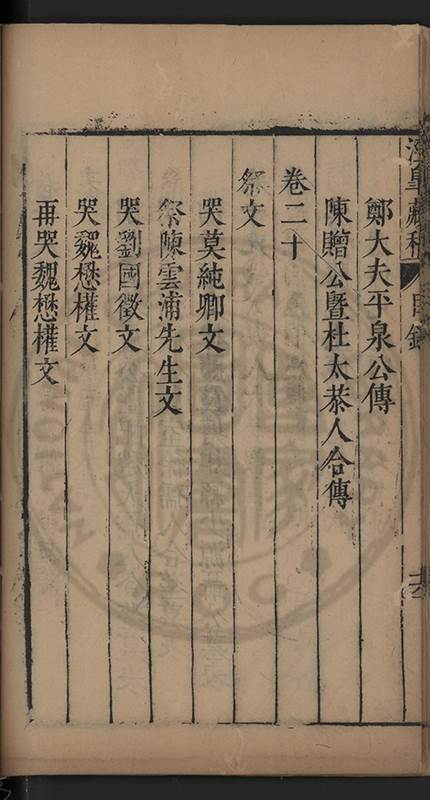 鄭大夫平泉公傳
陳贈公暨杜太恭人合傳
卷二十
祭文
哭莫純卿文
祭陳雲浦先生文
哭劉國徵文
哭魏懋權文
再哭魏懋權文